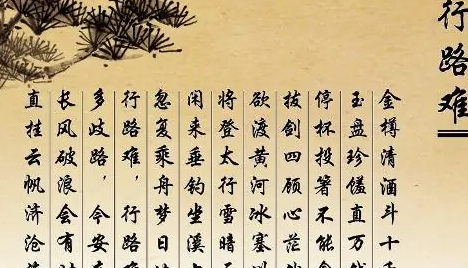 行路难
金樽清酒斗十
玉盘珍馐直万
停杯投箸不能
拔剑四顾心茫
欲渡黄河冰塞
将登太行雪暗
闲来垂钓坐溪
忽复乘舟梦日
行路难，行路
多歧路，今安
长风破浪会有
直挂云帆济沧